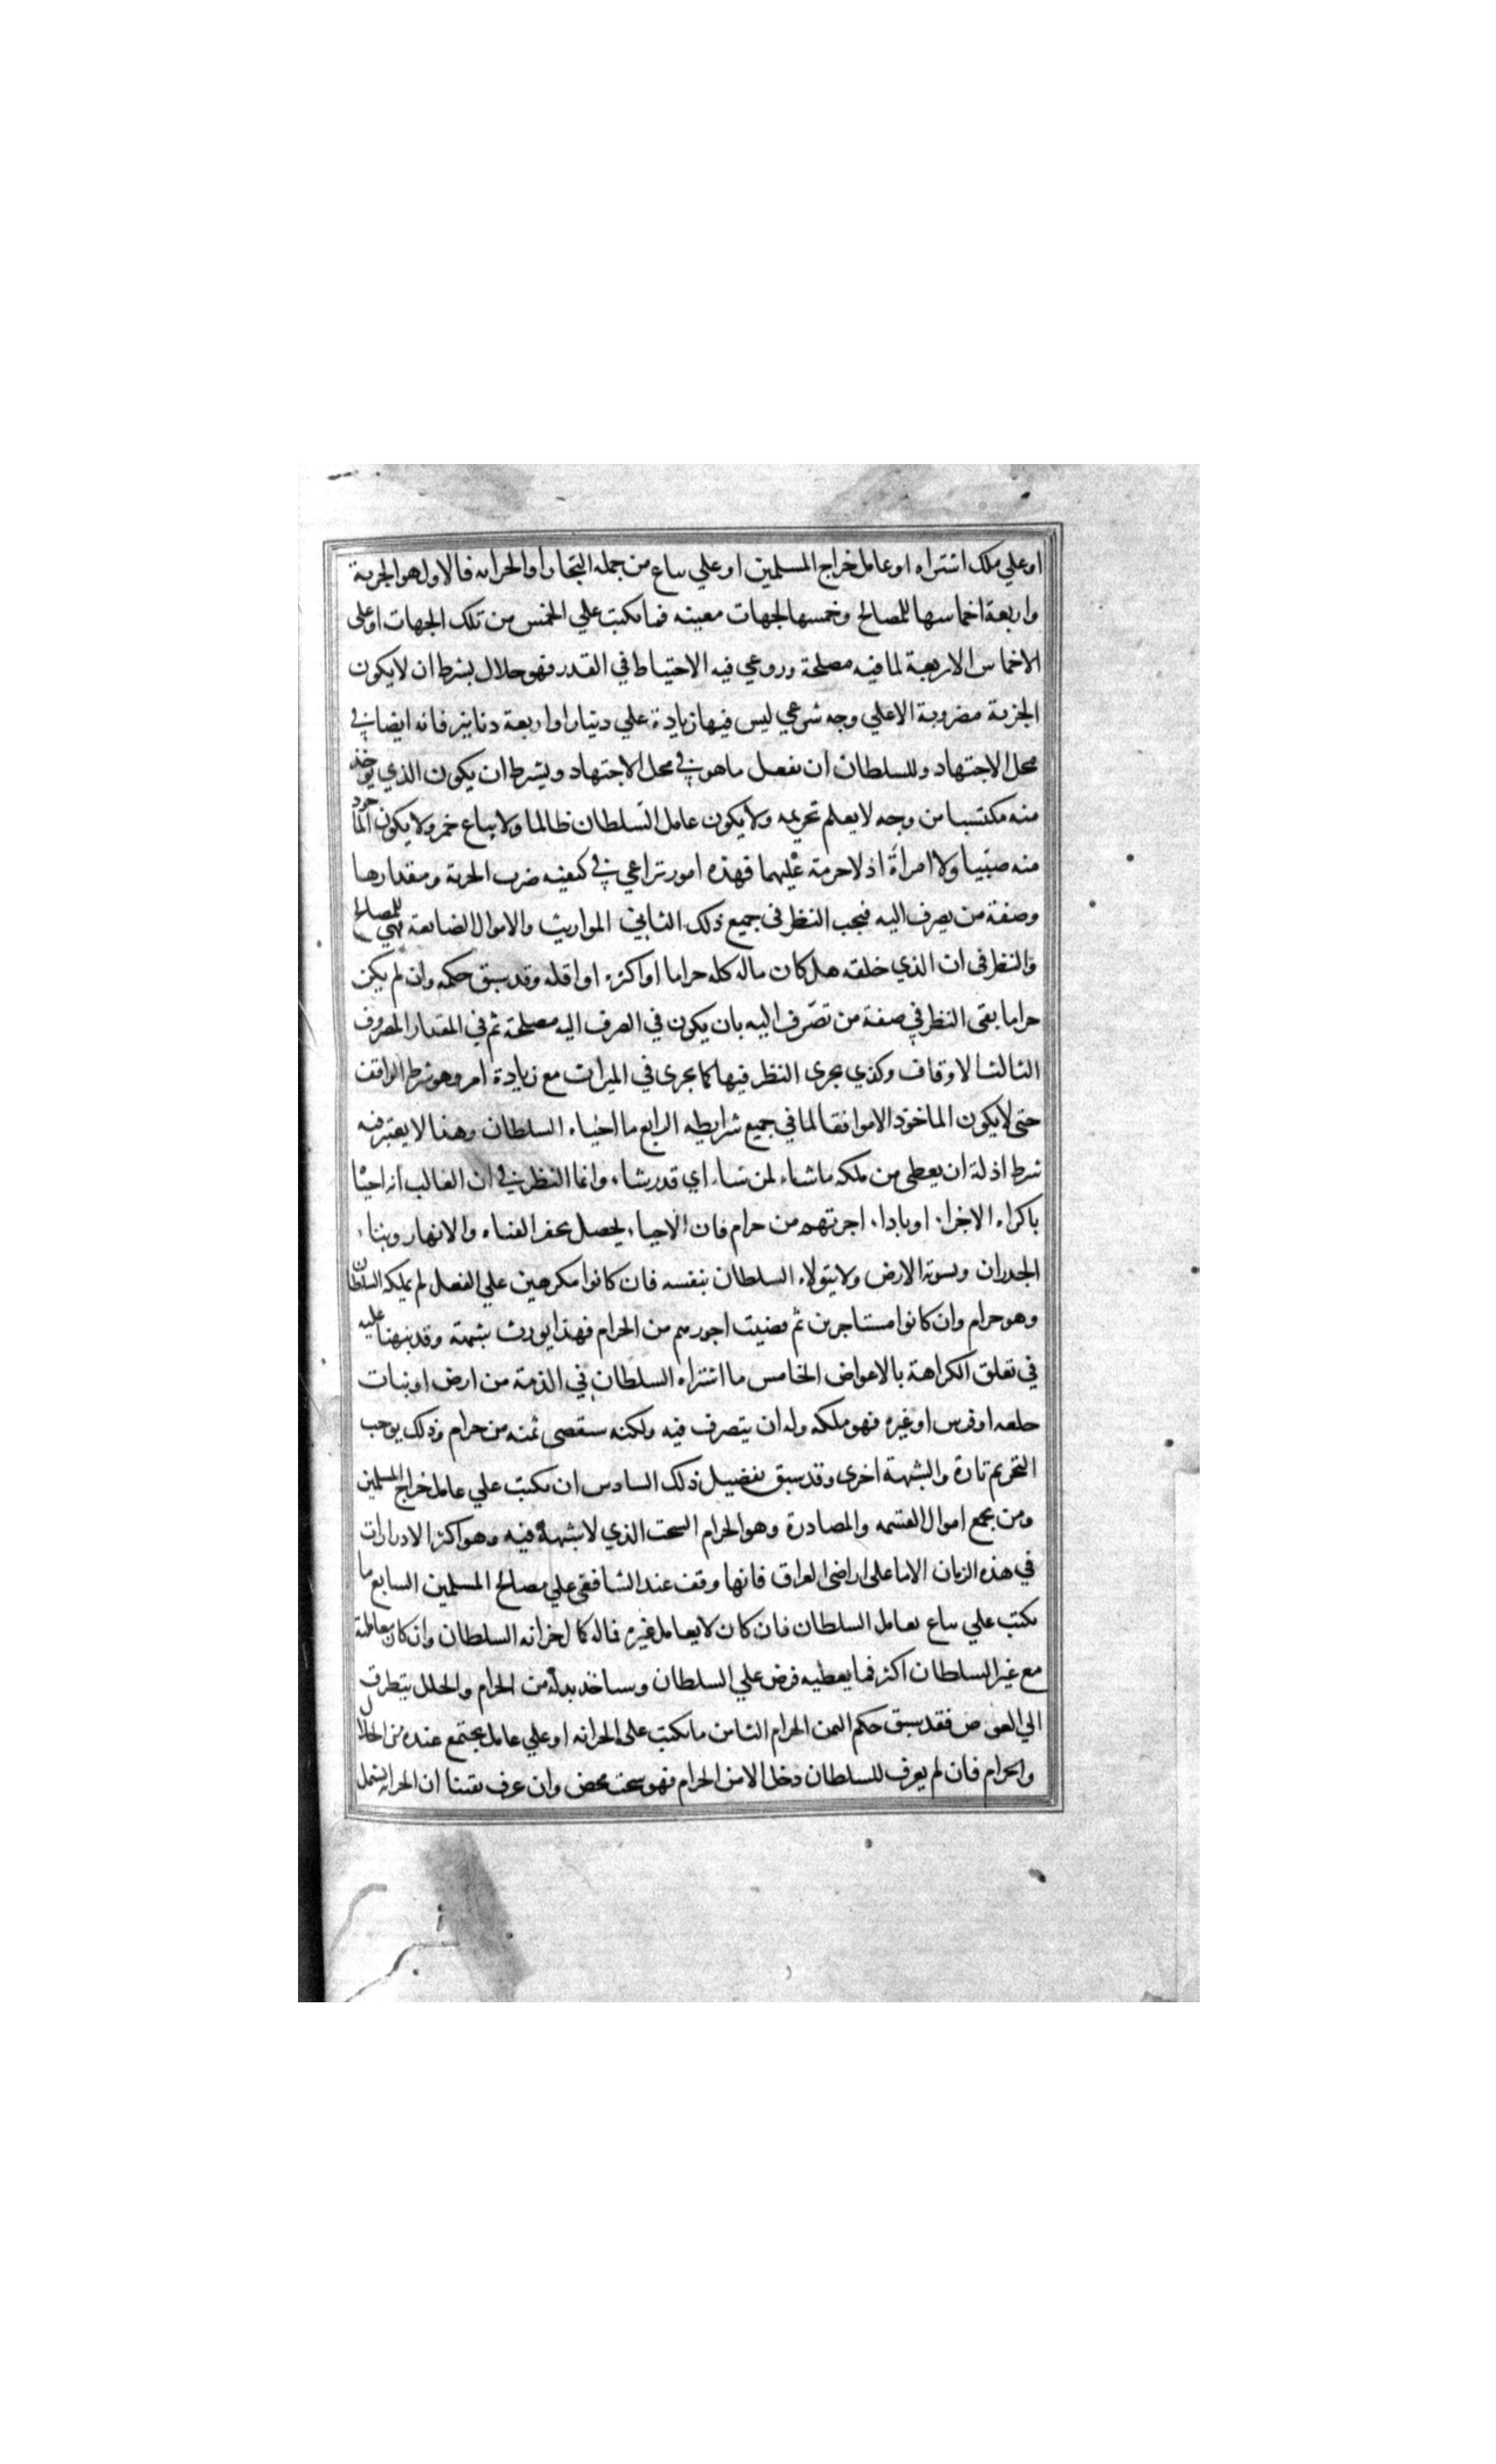 او علي ملك اشتراه او عامل خراج المسلمين او علي بياع من جمله التجار او الخزانه فالاول هو الجزية
واربعة اخماسها للمصالح وخمسها لجهات معينه فما يكتب علي الخمس من تلك الجهات او على
الاخماس الاربعة لما فيه مصلحة وروعي فيه الاحتياط في القدر فهو حلال بشرط ان لا يكون
الجزية مضروبة الا علي وجه شرعي ليس فيها زيادة علي دينار او اربعة دنانير فانه ايضا في
محل الاجتهاد وللسلطان ان يفعل ما هو في محل الاجتهاد ويشرط ان يكون الذي يوخذ
منه مكتسبا من وجه لا يعلم تحريمه ولا يكون عامل السلطان ظالما ولا بياع خمر ولا يكون الماخوذ
منه صبيا ولا امراة اذ لا حرمة عليهما فهذه امور تراعي في كيفيه ضرب الجزية ومقدارها
وصفة من يصرف اليه فيجب النظر في جميع ذلك الثاني المواريث والاموال الضايعة فهي للمصالح
والنظر في ان الذي خلفه هل كان ماله كله حراما او اكثره او اقله وقد سبق حكمه وان لم يكن
حراما بقى النظر في صفة من تصرف اليه بان يكون في الصرف اليه مصلحة ثم في المقدار المصروف
الثالث الاوقاف وكذي يجرى النظر فيها كما يجرى في الميراث مع زيادة امر وهو شرط الواقف
حتى لا يكون الماخوذ الا موافقا لما في جميع شرايطه الرابع ما احياه السلطان وهذا لا يعتبر فيه
شرط اذ له ان يعطى من ملكه ما شاء لمن شاء اي قدر شاء وانما النظر في ان الغالب انه احياه
باكراه الاجراء او باداء اجرتهم من حرام فان الاحياء يحصل بحفر القناه والانهار وبناء
الجدران وتسوية الارض ولا يتولاه السلطان بنفسه فان كانوا مكرهين علي الفعل لم يملكه السلطان
وهو حرام وان كانوا مستاجرين ثم قضيت اجورهم من الحرام فهذا يورث شبهة وقد نبهنا عليه
في تعلق الكراهة بالاعواض الخامس ما اشتراه السلطان في الذمة من ارض او ثياب
خلعه او فرس او غيره فهو ملكه وله ان يتصرف فيه ولكنه سيقضى ثمنه من حرام وذلك يوجب
التحريم تارة والشبهة اخرى وقد سبق تفصيل ذلك السادس ان يكتب علي عامل خراج المسلمين
ومن يجمع اموال القسمه والمصادرة وهو الحرام السحت الذي لا شبهة فيه وهو اكثر الادرارات
في هذه الزمان الا ما على اراضى العراق فانها وقف عند الشافعى علي مصالح المسلمين السابع ما
يكتب علي بياع يعامل السلطان فان كان لا يعامل غيره فماله كمال خزانه السلطان وان كان معاملته
مع غير السلطان اكثر فما يعطيه قرض علي السلطان وسياخذ بدله من الحرام والخلل يتطرق
الي العوض فقد سبق حكم الثمن الحرام الثامن ما يكتب على الخزانه او علي عامل يجتمع عنده من الحلال
والحرام فان لم يعرف للسلطان دخل الا من الحرام فهو سحت محض وان عرف يقينا ان الخزانه يشتمل